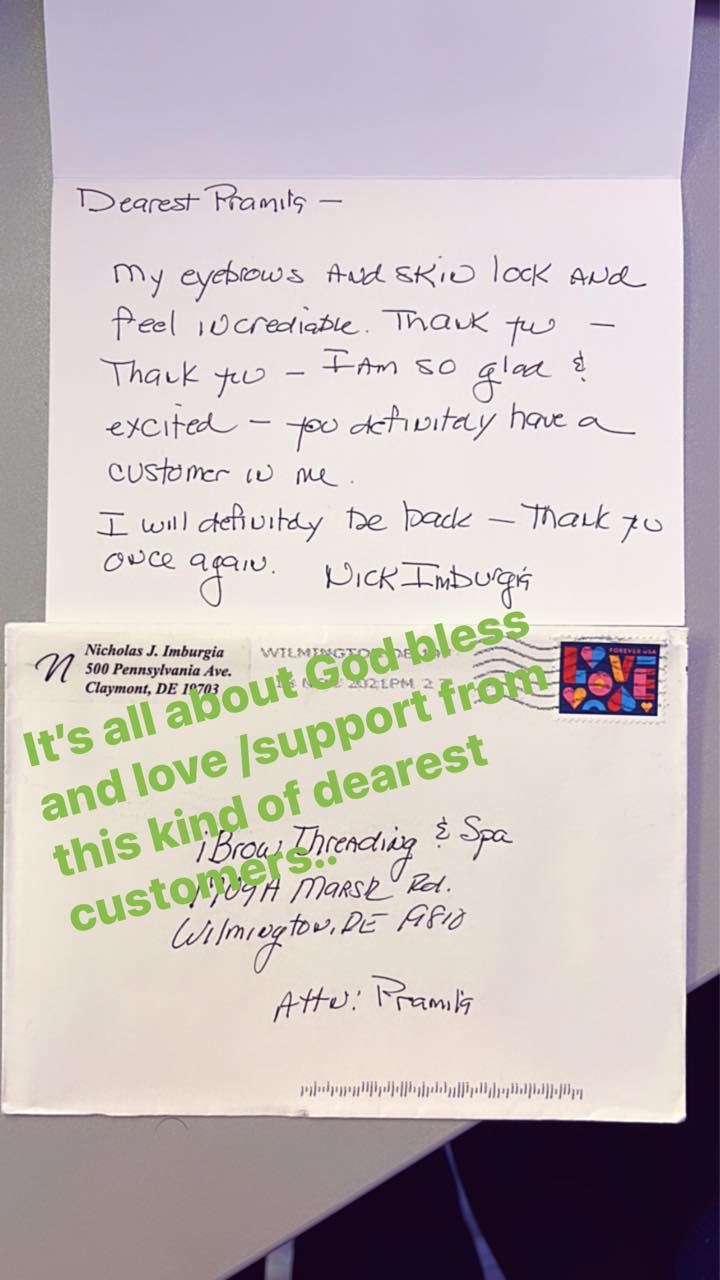 Dearest Pramita —
My eyebrows And skin look And
feel incrediable. Thank you —
Thank you — I Am so glad &
excited — you definitely have a
customer in me.
I will definitely be back — Thank you
once again. Nick Imburgia
n
Nicholas J. Imburgia
500 Pennsylvania Ave.
Claymont, DE 19703
WILMINGTON DE
NOV 2021PM 2
FOREVER USA
LOVE
It's all about God bless
and love /support from
this kind of dearest
customers..
iBrow Threading & Spa
Marsh Rd.
Wilmington, DE 19810
Attn: Pramita